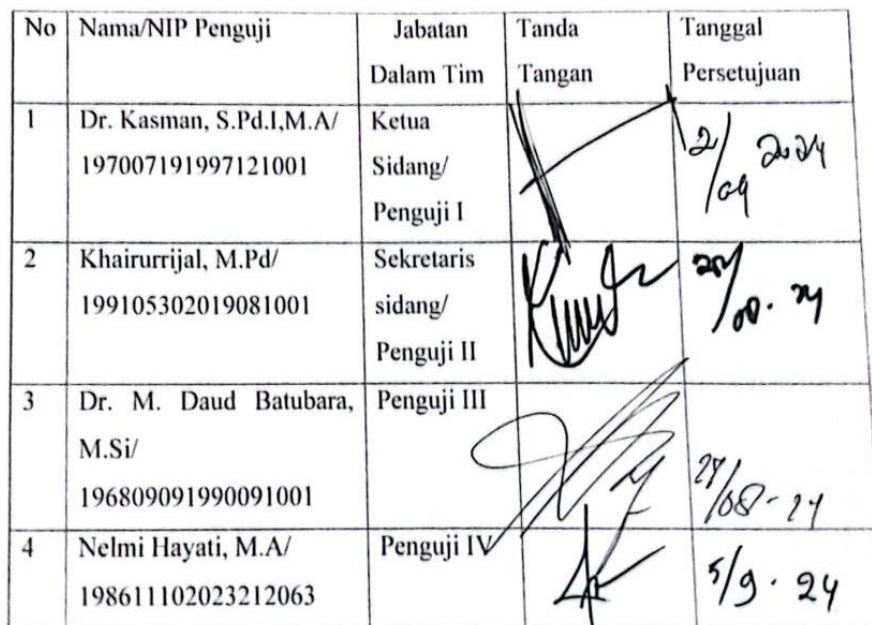 No Nama/NIP Penguji Jabatan Dalam Tim Tanda Tangan Tanggal Persetujuan
1 Dr. Kasman, S.Pd.I,M.A/
197007191997121001
Ketua
Sidang/
Penguji I
2/09 2024
2 Khairurrijal, M.Pd/
199105302019081001
Sekretaris
sidang/
Penguji II
/08. 24
3 Dr. M. Daud Batubara,
M.Si/
196809091990091001
Penguji III
27/08-24
4 Nelmi Hayati, M.A/
198611102023212063
Penguji IV
5/9. 24